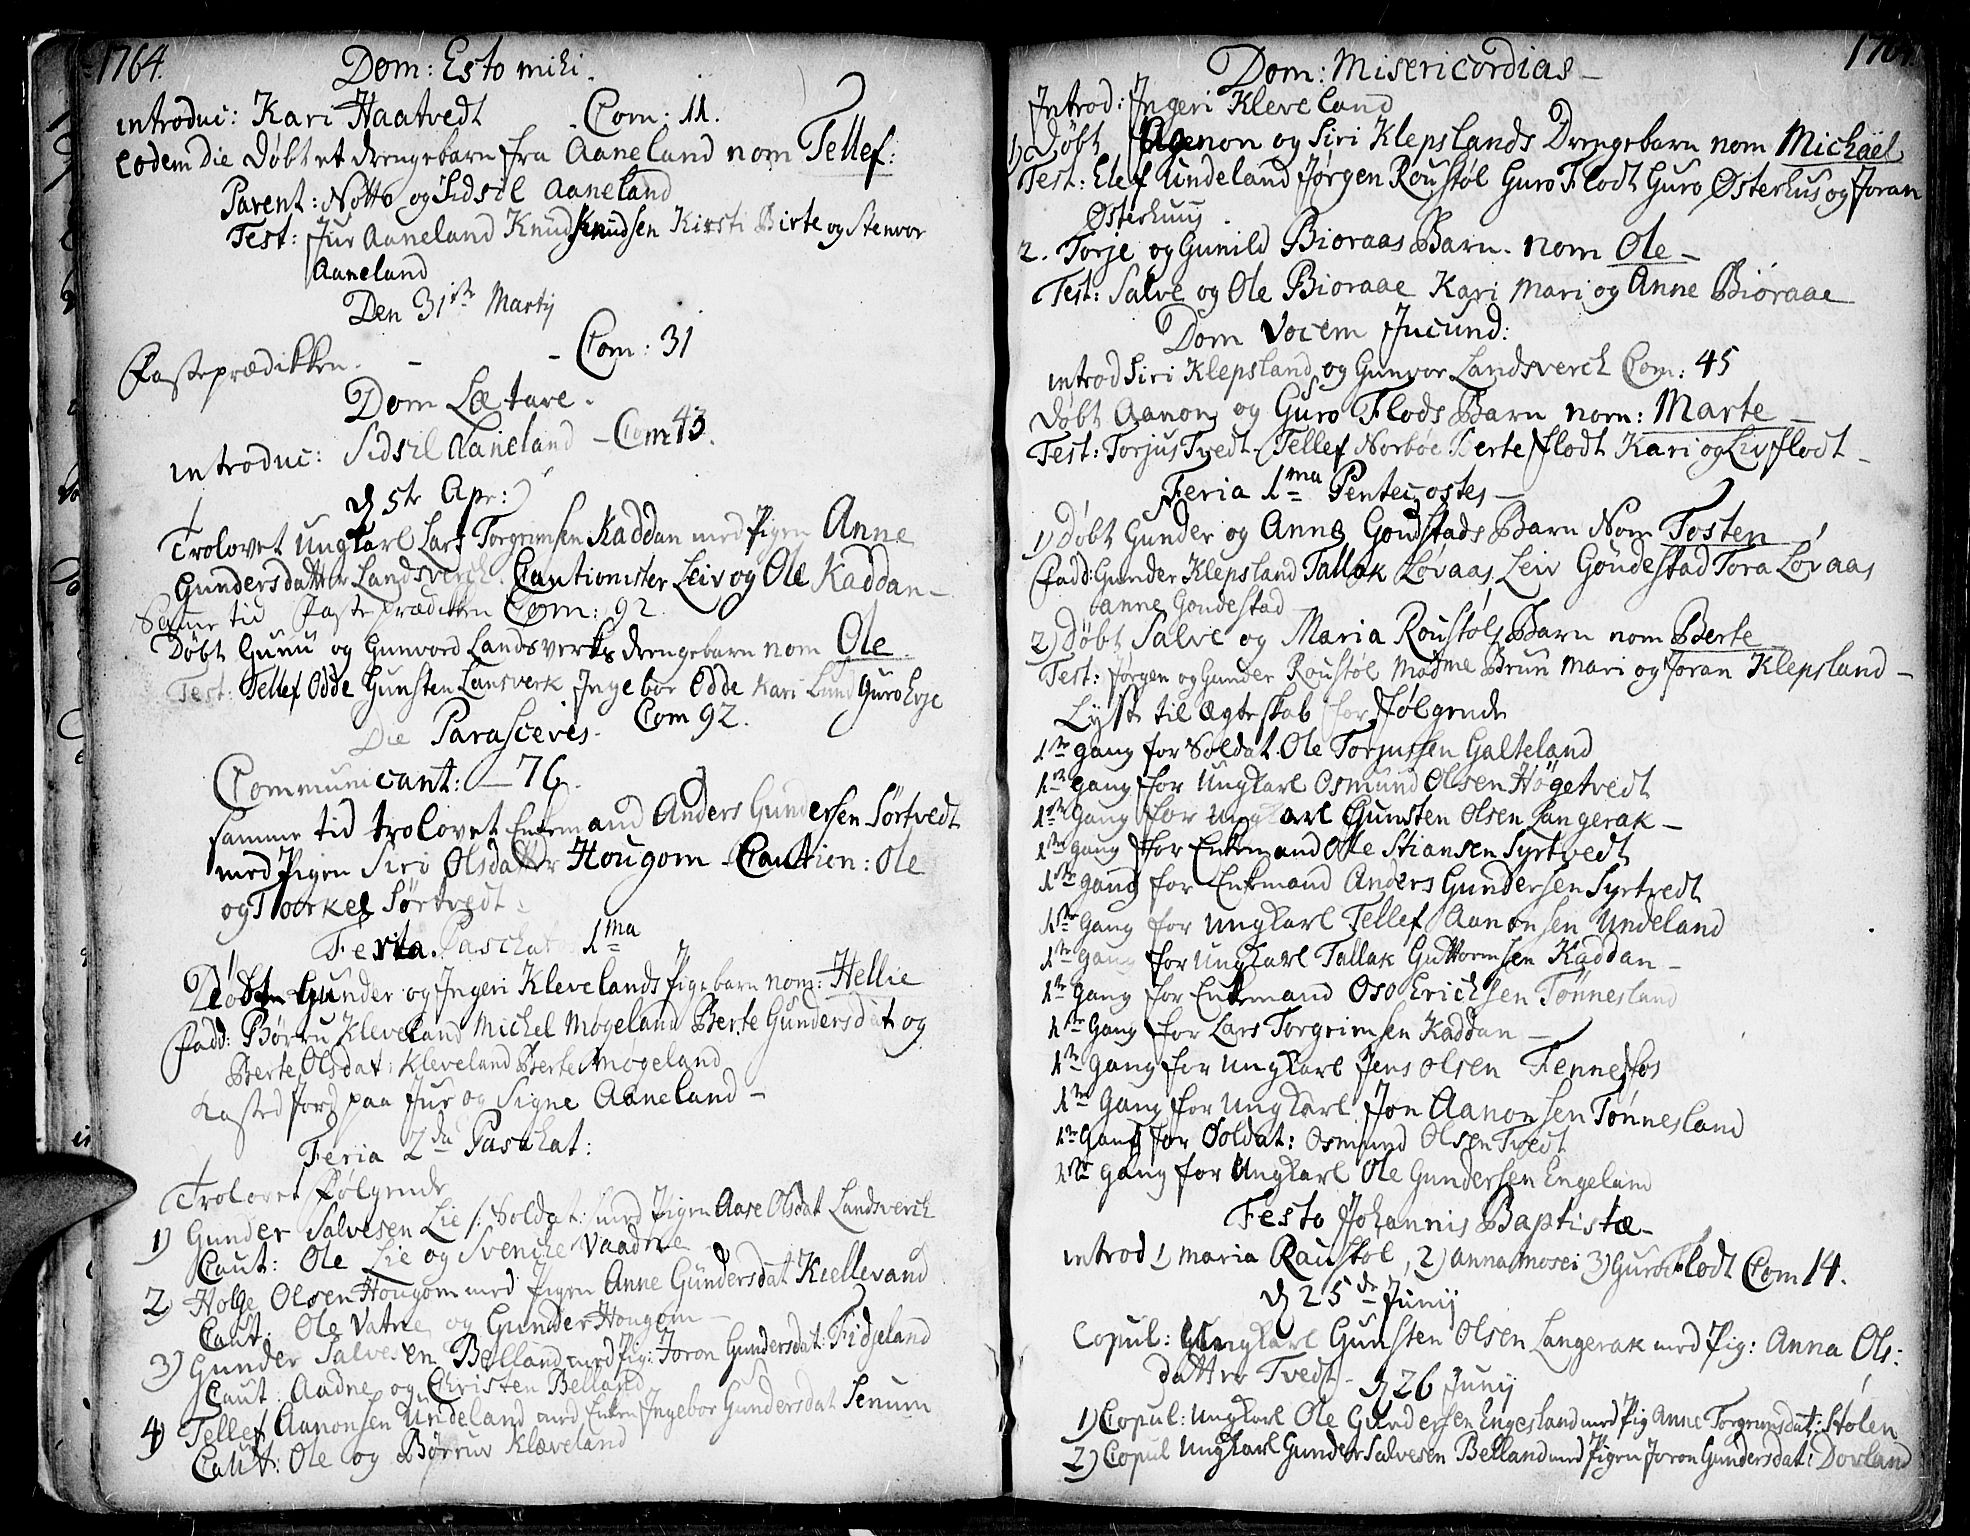 1764.
Dom: Esto mihi.
introduc: Kari Haatvedt Com: 11.
eodem Die Døbt et drengebarn fra Aaneland nom Tellef:
Parent: Notto og Sidsil Aaneland
Test: Jur Aaneland Knud Knudsen Kirsti Birte og Stenvor
Aaneland
Den 31te Martij
Fasteprædikken. - - Com: 31
Dom Lætare.
introduc: Sidsil Aaneland - Com 43.
d 5te Apr:
Trolovet Ungkarl Lars Torgrimsen Kaddan med Pigen Anne
Gundersdatter Landsverch. Cautionister Leiv og Ole Kaddan -
Samme tid Fasteprædikken Com: 92.
Døbt og Gunvord Landsverks drengebarn nom Ole.
Test: Tellef Odde Gunsten Lansverk Ingebor Odde Kari Lund Guro Evje
Die Parasceves. Com 92.
Communicant: - 76.
samme tid trolovet Enkemand Anders Gundersen Sørtvedt
med Pigen Siri Olsdatter Hougom - Caution: Ole
og Torkel Sørtvedt.
Feria Paschat 1ma
Døbt Gunder og Ingeri Klevelands Pigebarn nom: Hellie
Fadd: Børru Kleveland Michel Mogeland Berte Gundersdat og
Berte Olsdat: Kleveland Berte Mogeland
Kasted Jord paa Jur og Signe Aaneland -
Feria 2da Paschat:
Trolovet Følgende
1) Gunder Salvesen Lie /: Soldat :/ med Pigen Aase Olsdat Landsverch
Caut: Ole Lie og Svenche Vaadne
2) Holge Olsen Hougom med Pigen Anne Gundersdat Kiellevand
Caut: Ole Vatne og Gunder Hougom -
3) Gunder Salvesen Belland med Pig: Joron Gundersdat: Fidjeland
Caut: Aadne og Christen Belland
4) Tellef Aanonsen Undeland med Enken Ingebor Gundersdat Senum
Caut: Ole og Børruv Klæveland
1764.
Dom: Misericordias -
Introd: Ingeri Kleveland
1) Døbt Aanon og Siri Klepslands Drengebarn nom Michael
Test: Elef Undeland Jørgen Roustøl Guro Flodt Guro Østerhus og Joran
Østerhuus.
2. Torje og Gunild Bioraas Barn. nom Ole -
Test: Salve og Ole Bioraae Kari Mari og Anne Bioraae
Dom Vocem Jucund:
introd Siri Klepsland og Gunvor Landsverch Com: 45
Døbt Aanon og Guro Flods Barn nom: Marte -
Test: Torjus Tvedt. Tellef Norbøe Berte Flodt Kari og Liv Flodt -
Feria 1ma Pentecostes -
1) Døbt Gunder og Anne Goudstads Barn Nom Tosten
Fadd: Gunder Klepsland Tallak Løvaas Leiv Goudestad Tora Løvaas
anne Goudestad -
2) Døbt Salve og Maria Roustøls Barn nom Berte
Test: Jørgen og Gunder Roustøl Madme Brun Mari og Joran Klepsland -
Lyst til Ægteskab for Følgende
1te gang for Soldat Ole Torjussen Galteland
1te gang for Ungkarl Osmund Olsen Høgetvedt
1te Gang for Ungkarl Gunsten Olsen Langerak -
1te gang for Enkemand Ole Stiansen Syrtvedt
1te gang for Enkemand Anders Gundersen Syrtvedt
1te Gang for Ungkarl Tellef Aanonsen Undeland
1te Gang for Ungkarl Tallak Guttormsen Kaddan -
1te Gang for Enkemand Oso Erichsen Tønnesland
1te Gang for Lars Torgrimsen Kaddan -
1te Gang for Ungkarl Jens Olsen Fennefos
1te Gang for Ungkarl Jon Aanonsen Tønnesland
1te Gang for Soldat: Osmund Olsen Tvedt
1te Gang for Ungkarl Ole Gundersen Engeland
Festo Johannis Baptistæ -
introd 1) Maria Raustøl, 2) Anna Mosei 3) Guro Flodt Com 14.
d 25de Junij
Copul: Ungkarl Gunsten Olsen Langerak med Pig: Anna Ols:
datter Tvedt -
d 26 Junij
1) Copul: Ungkarl Ole Gundersen Engesland med Pig Anne Torgrimsdat: Stølen
2) Copul Ungkarl Gunder Salvesen Belland med Pigen Joron Gundersdat: Dovland